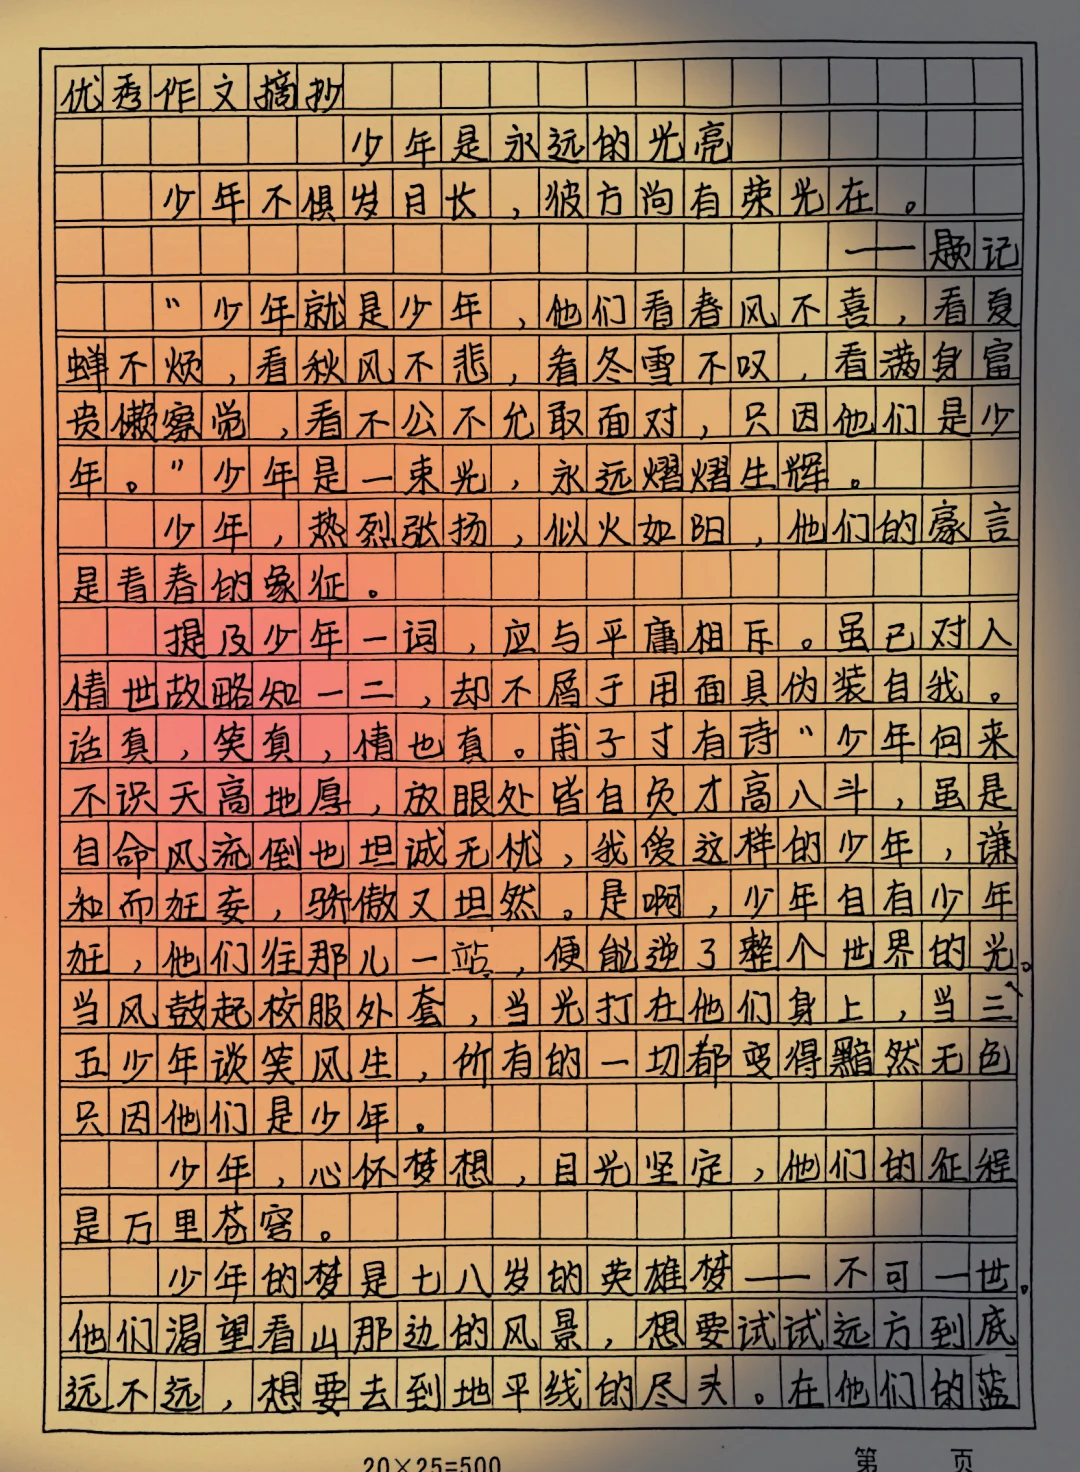 优秀作文摘抄
少年是永远的光亮
少年不惧岁月长，彼方尚有荣光在。
——题记
“少年就是少年，他们看春风不喜，看夏
蝉不烦，看秋风不悲，看冬雪不叹，看满身富
贵懒察觉，看不公不允敢面对，只因他们是少
年。”少年是一束光，永远熠熠生辉。
少年，热烈张扬，似火如阳，他们的豪言
是青春的象征。
提及少年一词，应与平庸相斥。虽已对人
情世故略知一二，却不屑于用面具伪装自我。
话真，笑真，情也真。甫子寸有诗“少年何来
不识天高地厚，放眼处皆自负才高八斗，虽是
自命风流倒也坦诚无忧，我爱这样的少年，谦
和而狂妄，骄傲又坦然。是啊，少年自有少年
狂，他们往那儿一站，便能逆了整个世界的光。
当风鼓起校服外套，当光打在他们身上，当三、
五少年谈笑风生，所有的一切都变得黯然无色
只因他们是少年。
少年，心怀梦想，目光坚定，他们的征程
是万里苍穹。
少年的梦是七八岁的英雄梦——不可一世。
他们渴望看山那边的风景，想要试试远方到底
远不远，想要去到地平线的尽头。在他们的蓝
20×25=500
第 页